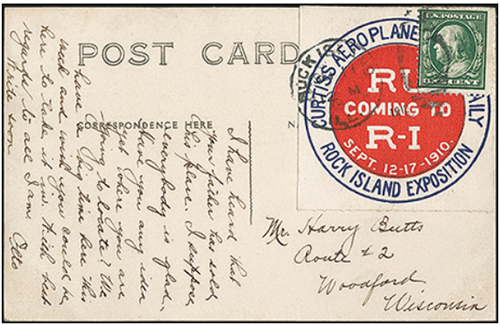 POST CARD
CORRESPONDENCE HERE
N
I have heard that
your father has sold
his place. I suppose
everybody is glad.
Have you any idea
yet where you are
going to locate? We
have a big time here this
week and wish you could be
here to take it in. With best
regards to all I am
Etto
Write soon.
U.S. POSTAGE
ROCK IS
CURTISS AEROPLANE
DAILY
RI
COMING TO
R-I
SEPT. 12-17-1910.
ROCK ISLAND EXPOSITION
Mr. Harry Butts
Route #2
Woodford
Wisconsin